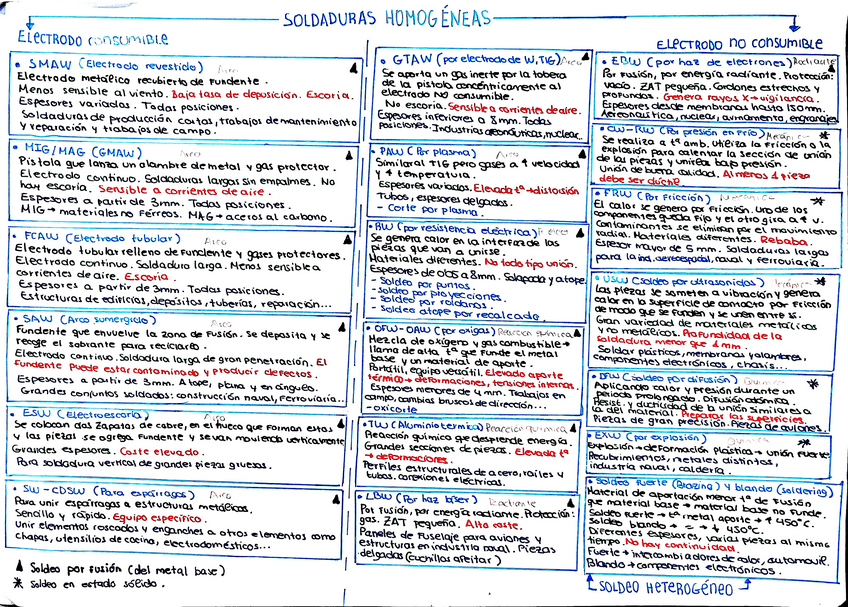 SOLDADURAS HOMOGÉNEAS
ELECTRODO CONSUMIBLE
• SMAW (Electrodo revestido) Arco
Electrodo metálico recubierto de fundente.
Menos sensible al viento. Baja tasa de deposición. Escoria.
Espesores variados. Todas posiciones.
Soldaduras de producción cortas, trabajos de mantenimiento
y reparación y trabajos de campo.
• MIG/MAG (GMAW) Arco
Pistola que lanza un alambre de metal y gas protector.
Electrodo continuo. Soldaduras largas sin empalmes. No
hay escoria. Sensible a corrientes de aire.
Espesores a partir de 3mm. Todas posiciones.
MIG → materiales no férreos. MAG → aceros al carbono.
• FCAW (Electrodo tubular) Arco
Electrodo tubular relleno de fundente y gases protectores.
Electrodo continuo. Soldadura larga. Menos sensible a
corrientes de aire. Escoria
Espesores a partir de 3mm. Todas posiciones.
Estructuras de edificios, depósitos, tuberías, reparación...
• SAW (Arco sumergido) Arco
Fundente que envuelve la zona de fusión. Se deposita y se
recoge el sobrante para reciclarlo.
Electrodo continuo. Soldadura larga de gran penetración. El
fundente puede estar contaminado y producir defectos.
Espesores a partir de 3mm. A tope, plana y en ángulo.
Grandes conjuntos soldados: construcción naval, ferroviaria...
• ESW (Electroescoria) Arco
Se colocan dos zapatas de cobre, en el hueco que forman estas
y las piezas se agrega fundente y se van moviendo verticalmente
Grandes espesores. Coste elevado.
Para soldadura vertical de grandes piezas gruesas.
• SW-CDSW (Para espárragos) Arco
Para unir espárragos a estructuras metálicas.
Sencillo y rápido. Equipo específico.
Unir elementos roscados y enganches a otros elementos como
chapas, utensilios de cocina, electrodomésticos...
▲ Soldeo por fusión (del metal base)
* Soldeo en estado sólido.
• GTAW (por electrodo de W, TIG) Arco
Se aporta un gas inerte por la tobera
de la pistola concéntricamente al
electrodo no consumible.
No escoria. Sensible a corrientes de aire.
Espesores inferiores a 8mm. Todas
posiciones. Industrias aeronáuticas, nuclear.
• PAW (Por plasma) Arco
Similar al TIG pero gases a ↑ velocidad
y ↑ temperatura.
Espesores variados. Elevada tª → distorsión
Tubos, espesores delgados.
- Corte por plasma.
• RW (por resistencia eléctrica)
Se genera calor en la interfaz de las
piezas que van a unirse.
Materiales diferentes. No todo tipo unión.
Espesores de 0'05 a 8mm. Solapada y a tope.
- Soldeo por puntos.
- Soldeo por proyecciones.
- Soldeo por roldanas.
- Soldeo a tope por recalcado.
• OFW-OAW (Por oxigas) Reacción química
Mezcla de oxígeno y gas combustible →
llama de alta tª que funde el metal
base y un material de aporte.
Portátil, equipo versátil. Elevado aporte
térmico → deformaciones, tensiones internas.
Espesores menores de 4 mm. Trabajos en
campo, cambios bruscos de dirección...
- oxicorte
• TW (Aluminotermica) Reacción química
Reacción química que desprende energía.
Grandes secciones de piezas. Elevada tª
→ deformaciones.
Perfiles estructurales de acero, raíles y
tubos. conexiones eléctricas.
• LBW (Por haz láser) Radiante
Por fusión, por energía radiante. Protección:
gas. ZAT pequeña. Alto coste.
Paneles de fuselaje para aviones y
estructuras en industria naval. Piezas
delgadas (cuchillas afeitar)
ELECTRODO NO CONSUMIBLE
• EBW (por haz de electrones) Radiante
Por fusión, por energía radiante. Protección:
vacío. ZAT pequeña. Cordones estrechos y
profundos. Genera rayos X → vigilancia.
Espesores desde membranas hasta 185mm.
Aeronáutica, nuclear, armamento, engranajes
• CW-RW (Por presión en frío) Mecánica
Se realiza a tª amb. Utiliza la fricción o la
explosión para calentar la sección de unión
de las piezas y unirlas bajo presión.
Unión de buena calidad. Al menos 1 pieza
debe ser dúctil.
• FRW (Por fricción) Mecánica
El calor se genera por fricción. Uno de los
componentes queda fijo y el otro gira a ↑ v.
Contaminantes se eliminan por el movimiento
radial. Materiales diferentes. Rebaba.
Espesor mayor de 5mm. Soldaduras largas
para la ind. aeroespacial, naval y ferroviaria.
• USW (Soldeo por ultrasonidos)
Las piezas se someten a vibración y genera
calor en la superficie de contacto por fricción
de modo que se funden y se unen entre sí.
Gran variedad de materiales metálicos
y no metálicos. Profundidad de la
soldadura menor que 4mm.
Soldar plásticos, membranas y alambres,
componentes electrónicos, chasis...
• DFW (Soldeo por difusión)
Aplicando calor y presión durante un
periodo prolongado. Difusión atómica.
Resist. y ductilidad de la unión similares a
la del material. Preparar las superficies.
Piezas de gran precisión. Piezas de aviones.
• EXW (por explosión)
Explosión → deformación plástica → unión fuerte.
Recubrimientos, metales distintos,
industria naval, calderería.
• Soldeo fuerte (Brazing) y blando (soldering)
Material de aportación menor tª de fusión
que material base → material base no funde.
Soldeo fuerte → tª metal aporte → ↑ 450°C.
Soldeo blando → = → ↓ 450°C.
Diferentes espesores, varias piezas al mismo
tiempo. No hay continuidad.
Fuerte → intercambiadores de calor, automóvil.
Blando → componentes electrónicos.
SOLDEO HETEROGÉNEO